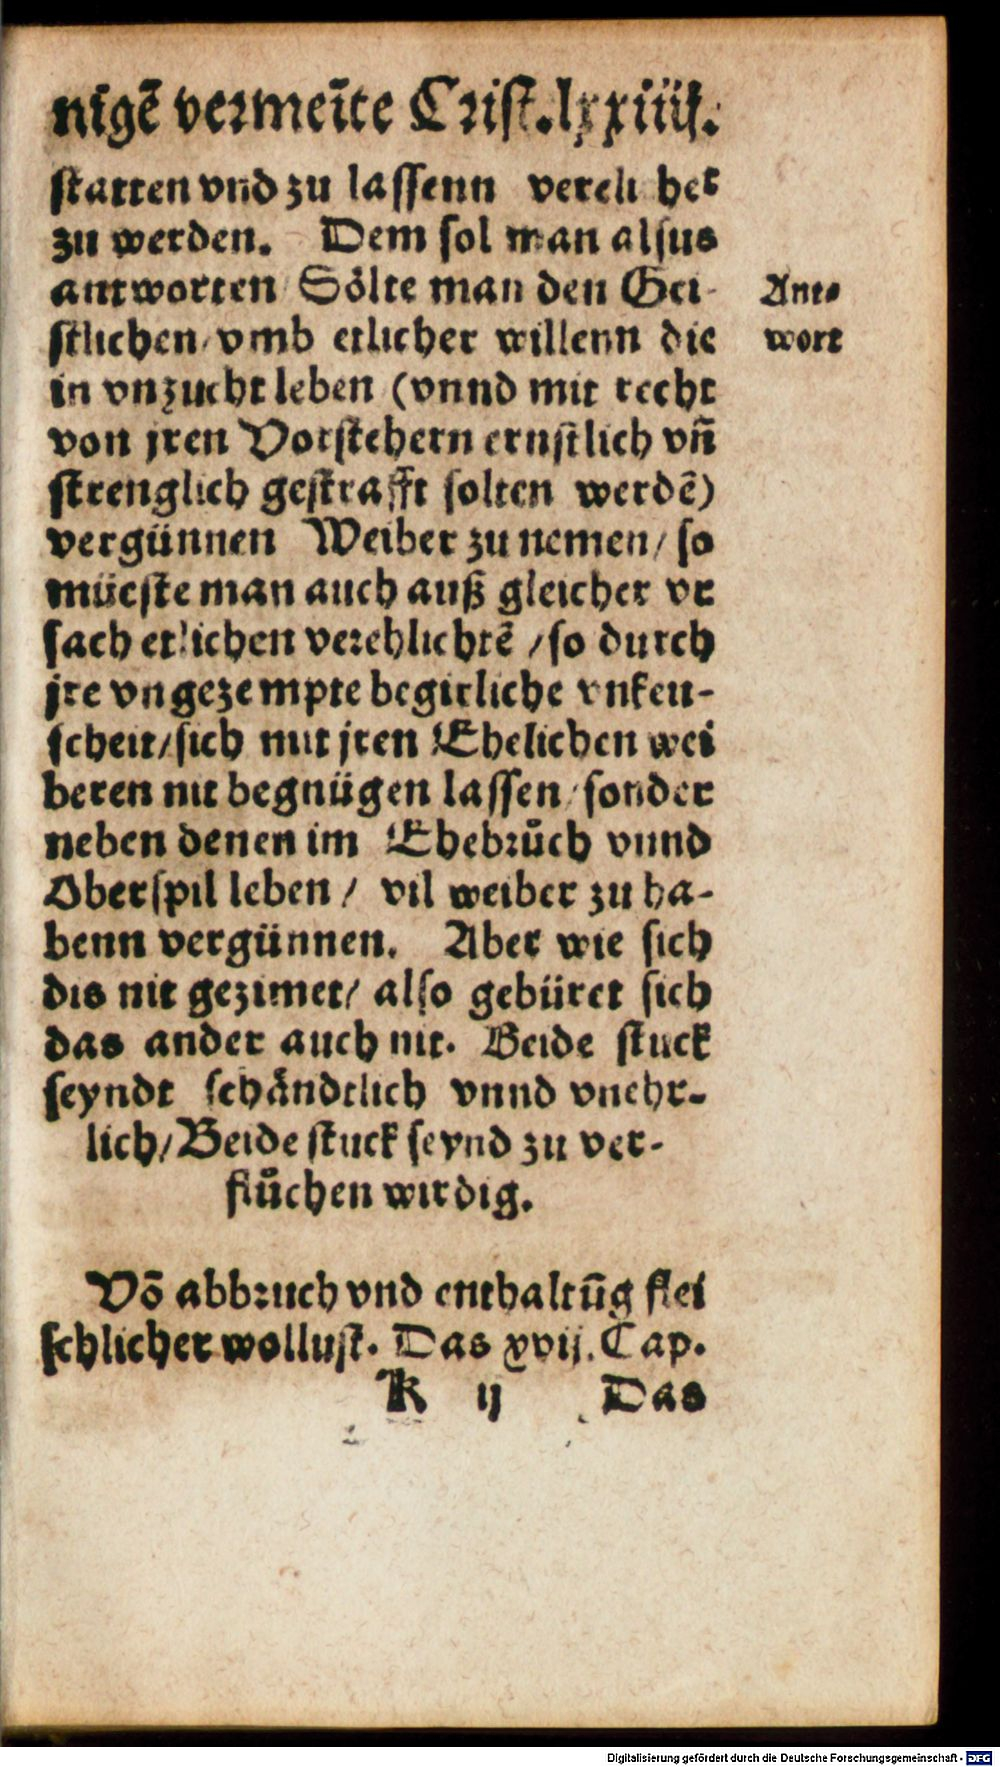 nigē vermeīte Crist. lxxiiij.
statten vnd zu lassenn verelichet
zu werden. Dem sol man alsus
antworten Sölte man den Gei-
stlichen/ vmb etlicher willenn die
in vnzucht leben (vnnd mit recht
von jren Vorstehern ernstlich vñ
strenglich gestrafft solten werdē)
vergünnen Weiber zu nemen/ so
müeste man auch auß gleicher vr
sach etlichen verehlichtē /so durch
jre vngezempte begirliche vnkeu-
scheit/sich mit jren Ehelichen wei
beren nit begnügen lassen/ sonder
neben denen im Ehebrůch vnnd
Oberspil leben/ vil weiber zu ha-
benn vergünnen. Aber wie sich
dis nit gezimet/ also gebüret sich
das ander auch nit. Beide stuck
seyndt schändtlich vnnd vnehr-
lich/Beide stuck seynd zu ver-
flůchen wirdig.
Vō abbruch vnd enthaltūg flei
schlicher wollust. Das xvij. Cap.
K ij Das
Ant-
wort
Digitalisierung gefördert durch die Deutsche Forschungsgemeinschaft - DFG